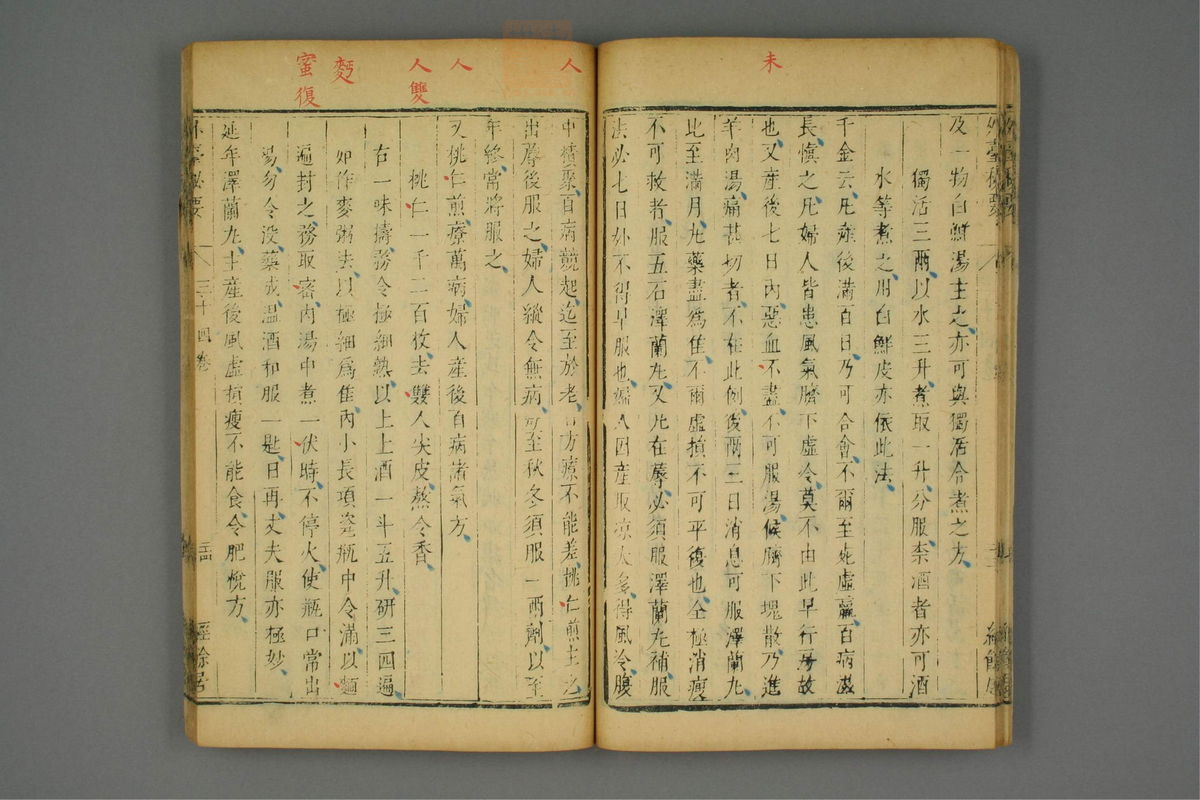 未
及一物白鮮湯主之亦可與獨活合煮之方
獨活三兩以水三升煮取一升分服柰酒者亦可酒
水等煮之用白鮮皮亦依此法
千金云凡產後滿百日乃可合會不爾至死虛羸百病滋
長慎之凡婦人皆患風氣臍下虛冷莫不由此早行房故
也又產後七日內惡血不盡不可服湯候臍下塊散乃進
羊肉湯痛甚切者不在此例後兩三日消息可服澤蘭丸
比至滿月丸藥盡為佳不爾虛損不可平復也全極消瘦
不可救者服五石澤蘭丸又凡在蓐必須服澤蘭丸補服
法必七日外不得早服也婦人因產取涼太多得風冷腹
人
人
人雙
麪
蜜復
中積聚百病競起迄至於老百方療不能差桃仁煎主之
出蓐後服之婦人縱令無病每至秋冬須服一兩劑以至
年終常將服之
又桃仁煎療萬病婦人產後百病諸氣方
桃仁一千二百枚去雙人尖皮熬令香
右一味擣務令極細熟以上上酒一斗五升研三四遍
如作麥粥法以極細為佳內小長項瓷瓶中令滿以麵
遍封之務取密內湯中煮一伏時不停火使瓶口常出
湯勿令沒藥成溫酒和服一匙日再丈夫服亦極妙
延年澤蘭丸主產後風虛損瘦不能食令肥悅方
外臺秘要
三十四卷
二四
經餘居